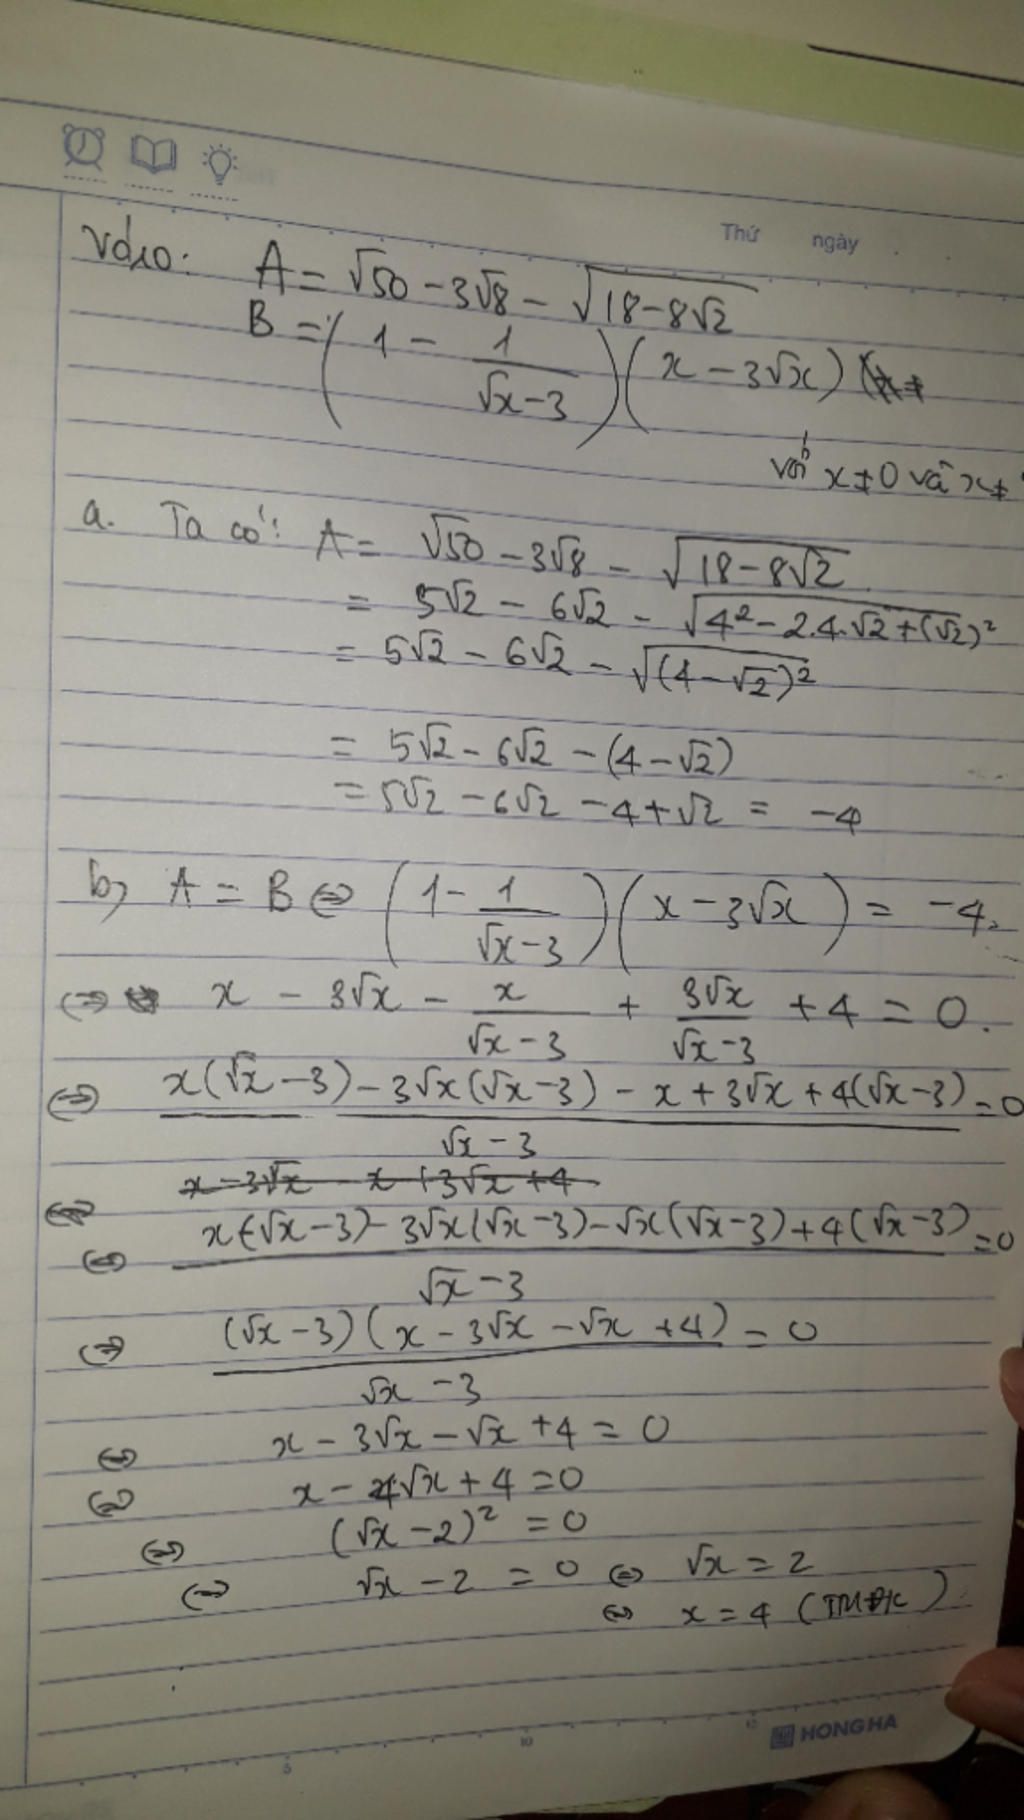 Thứ ngày
A = √50 - 3√8 - √(18-8√2)
B = (1 - 1/(√x-3))(x - 3√x)
với x ≠ 0 và x ≠
a. Ta có: A = √50 - 3√8 - √(18-8√2)
= 5√2 - 6√2 - √(4² - 2.4.√2 + (√2)²
= 5√2 - 6√2 - √((4-√2)²)
= 5√2 - 6√2 - (4-√2)
= 5√2 - 6√2 - 4 + √2 = -4
b, A = B ⇔ (1 - 1/(√x-3))(x - 3√x) = -4
⇔ x - 3√x - x/(√x-3) + 3√x/(√x-3) + 4 = 0.
⇔ (x(√x-3) - 3√x(√x-3) - x + 3√x + 4(√x-3))/(√x-3) = 0
x - 3√x - x + 3√x + 4
⇔ (x(√x-3) - 3√x(√x-3) - √x(√x-3) + 4(√x-3))/(√x-3) = 0
⇔ ((√x-3)(x - 3√x - √x + 4))/(√x-3) = 0
⇔ x - 3√x - √x + 4 = 0
⇔ x - 4√x + 4 = 0
⇔ (√x-2)² = 0
⇔ √x - 2 = 0 ⇔ √x = 2
⇔ x = 4 (TMĐK)
5 10
HONG HA